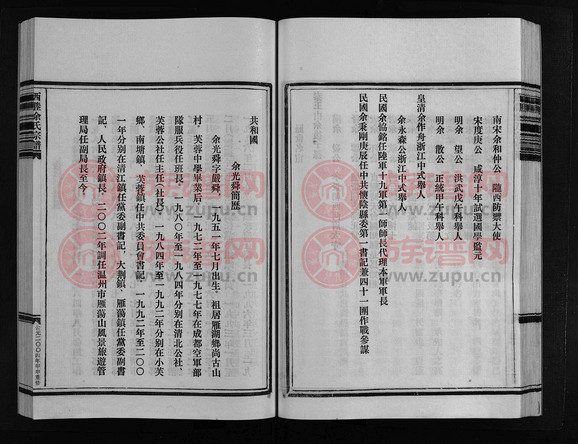 南宋余和仲公　隴西防禦大使
宋度庚公　咸淳十年試選國學監元
明余　望公　洪武戊午科舉人
明余　散公　正統甲午科舉人
皇清余作舟浙江中式舉人
余永森公浙江中式舉人
民國余協銘任陸軍十九軍第一師師長代理本軍軍長
民國余秉剛庚辰任中共懷陰縣委第一書記兼四十一團作戰參謀
共和國
余光舜簡歷
余光舜字嚴舜，一九五一年七月出生，祖居雁湖鄉尚古山
村。芙蓉中學畢業后，一九七二年至一九七七年在成都空軍部
隊服兵役任班長，一九八〇年至一九八四年分別在清北公社、
芙蓉公社任主任（社長），一九八四年至一九九二年分別在小芙
鄉、南塘鎮、芙蓉鎮任中共委員會書記，一九九二年至二〇〇
一年分別在清江鎮任黨委副書記、大荆鎮、雁蕩鎮任黨委副書
記、人民政府鎮長，二〇〇二年調任温州市雁蕩山風景旅遊管
理局任副局長至今。
西塍余氏宗譜
公元二〇〇四年甲申重修
族譜网
www.zupu.cn
族譜网
www.zupu.cn